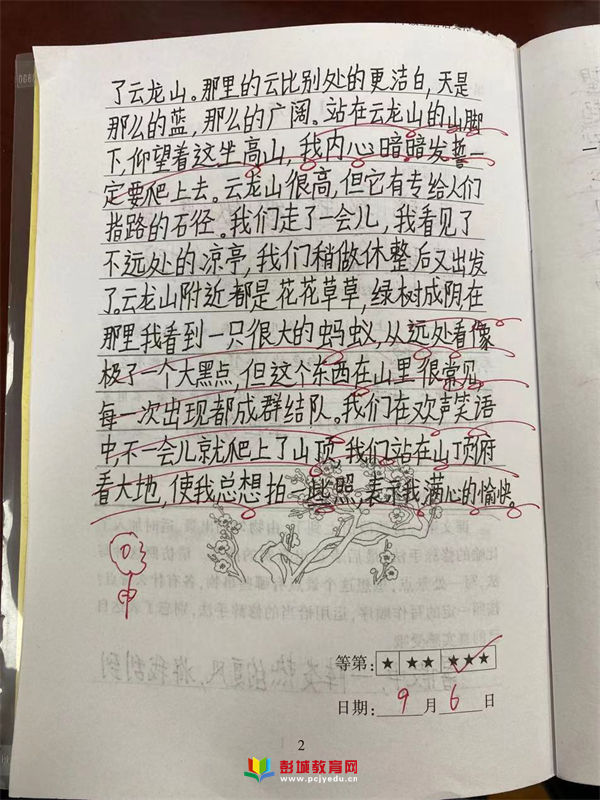 了云龙山。那里的云比别处的更洁白,天是
那么的蓝,那么的广阔。站在云龙山的山脚
下,仰望着这坐高山,我内心暗暗发誓一
定要爬上去。云龙山很高,但它有专给人们
指路的石径。我们走了一会儿,我看见了
不远处的凉亭,我们稍做休整后又出发
了。云龙山附近都是花花草草,绿树成阴在
那里我看到一只很大的蚂蚁,从远处看像
极了一个大黑点,但这个东西在山里很常见,
每一次出现都成群结队。我们在欢声笑语
中,不一会儿就爬上了山顶,我们站在山顶俯
看大地,使我总想拍一些照,表示我满心的愉快。
等第: ★ ★★ ★★★
日期: 9 月 6 日
2
彭城教育网
www.pcjyedu.cn